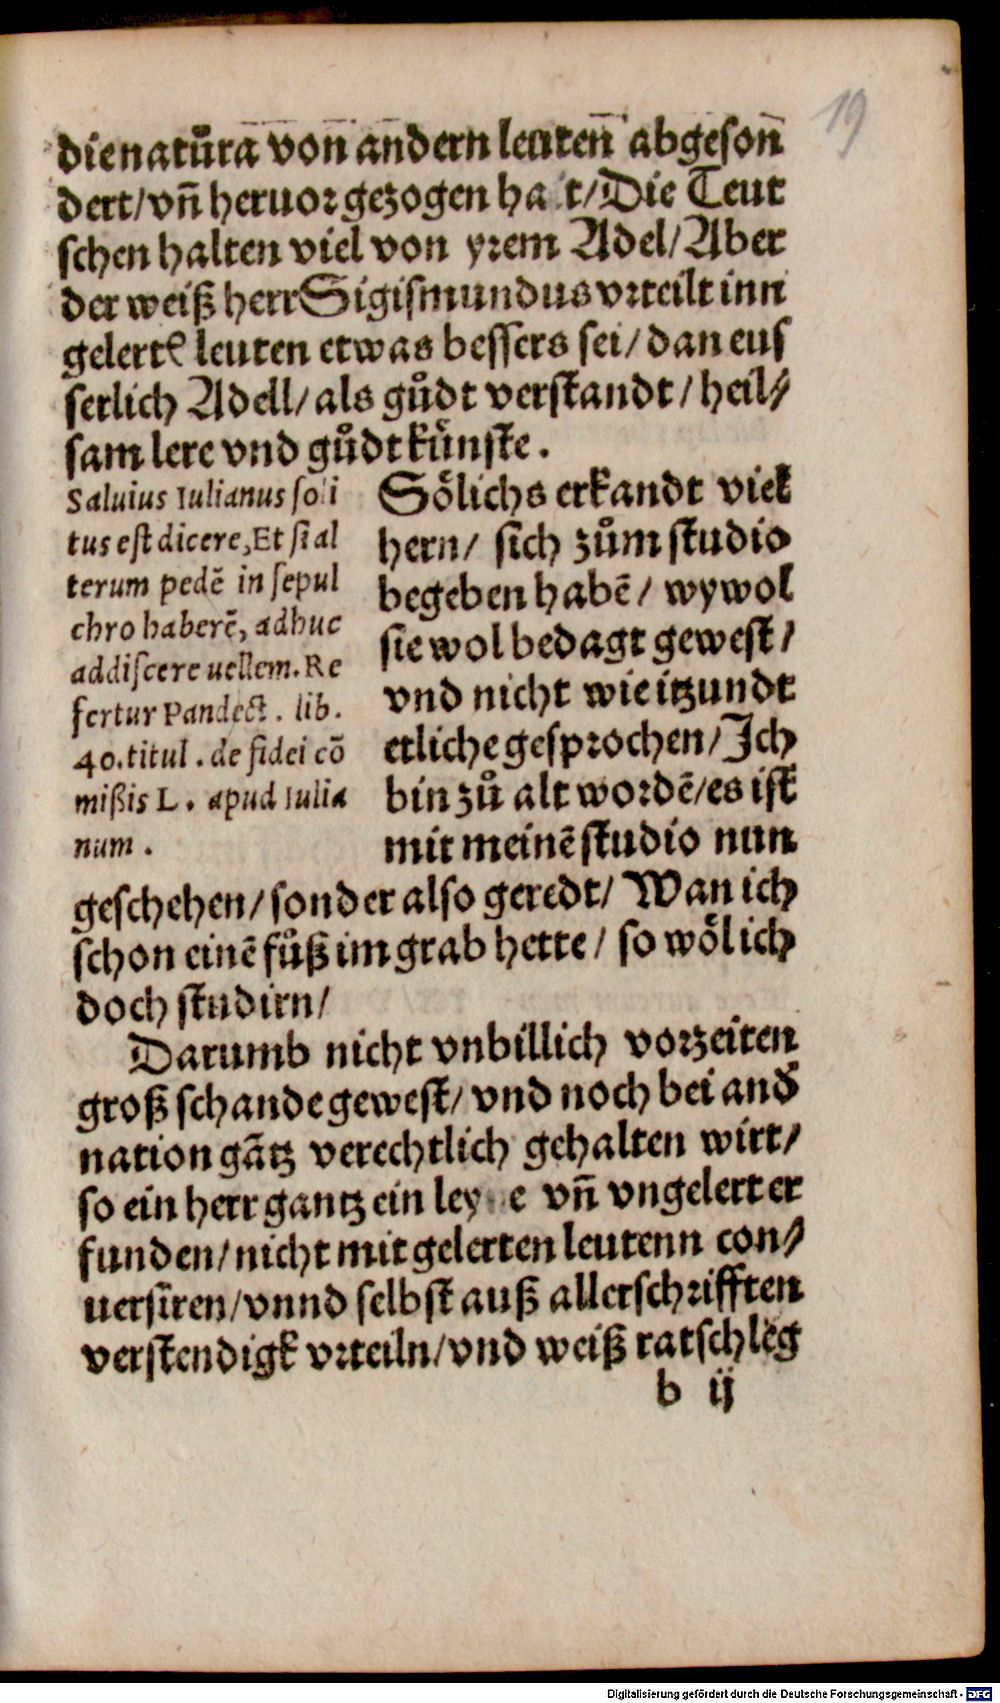 19
die natůra von andern leutenn abgeson̄
dert/vn̄ heruor gezogen ha t/Die Teut
schen halten viel von yrem Adel/Aber
der weiß herr Sigismundus vrteilt inn
gelertē leuten etwas bessers sei/dan eus
serlich Adell/als gůdt verstandt/heil⸗
sam lere vnd gůdt künste.
Saluius Iulianus soli
tus est dicere, Et si al
terum pedē in sepul
chro haberē, adhuc
addiscere uellem. Re
fertur Pandect. lib.
40. titul. de fidei cō
mißis L. apud Iulia
num.
Sölichs erkandt viel
hern/ sich zům studio
begeben habē/ wywol
sie wol bedagt gewest/
vnd nicht wie itzundt
etliche gesprochen/Ich
bin zů alt wordē/es ist
mit meinē studio nun
geschehen/sonder also geredt/ Wan ich
schon einē fůß im grab hette/ so wöl ich
doch studirn/
Darumb nicht vnbillich vorzeiten
groß schande gewest/vnd noch bei and̄
nation gātz verechtlich gehalten wirt/
so ein herr gantz ein ley e vn̄ vngelert er
funden/nicht mit gelerten leutenn con⸗
uersiren/vnnd selbst auß aller schrifften
verstendigk vrteiln/vnd weiß ratschleg
b ij
Digitalisierung gefördert durch die Deutsche Forschungsgemeinschaft - DFG